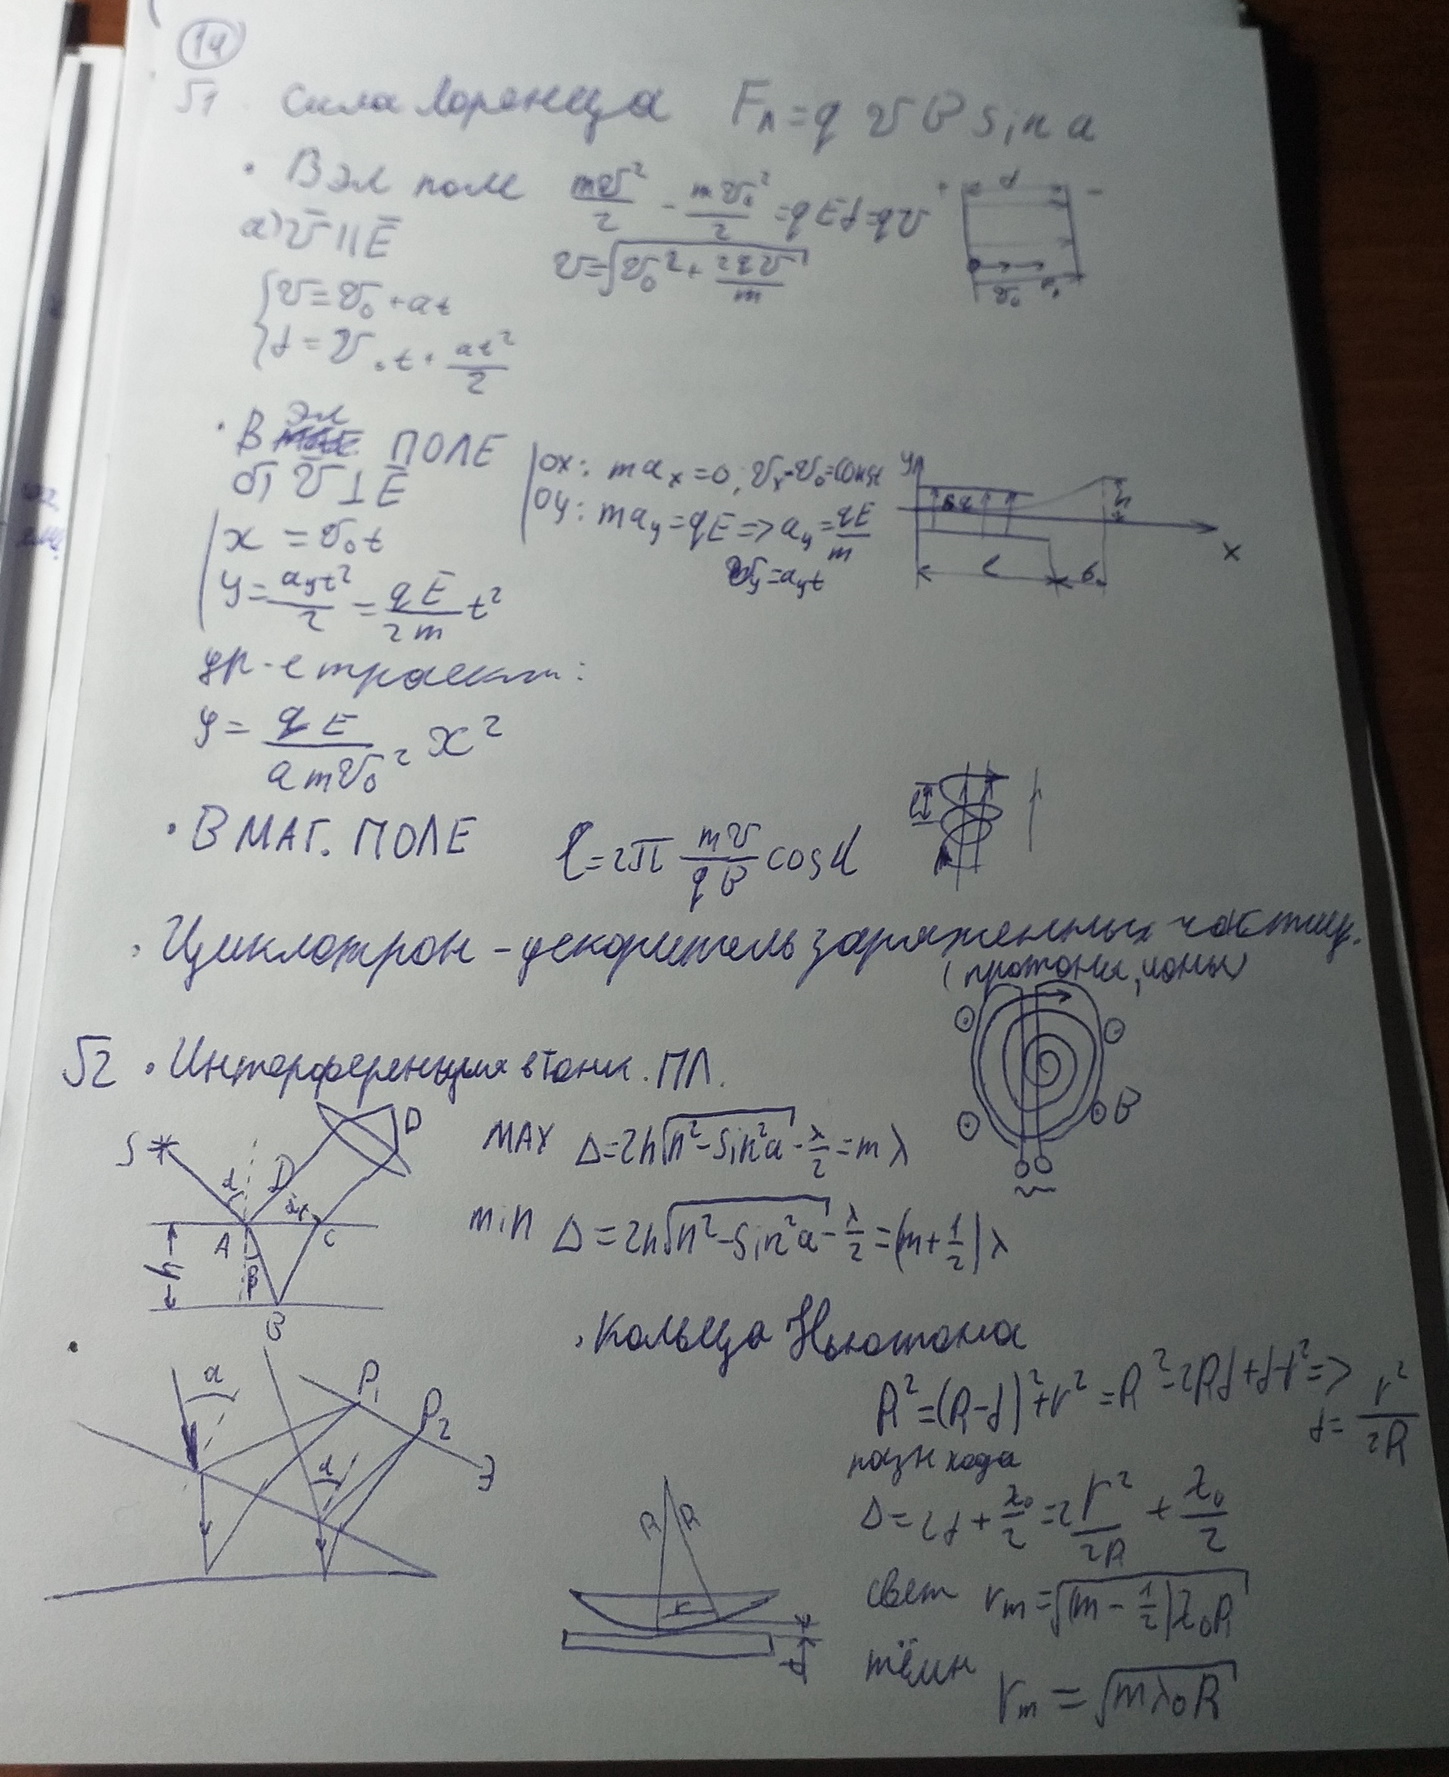 14
√1 Сила Лоренца Fл = q v B sin a
• В эл поле mv²/2 - mv₀²/2 = qEd = qU
+ d -
а) v̄ || Ē
v = √(v₀² + 2qU/m)
{ v = v₀ + at
v₀
{ d = v₀t + at²/2
• В эл поле
б) v̄ ⊥ Ē
| ox: maₓ = 0, vₓ = v₀ = const
| oy: ma_y = qE => a_y = qE/m
v_y = a_y t
y h x l b
| x = v₀t
| y = a_y t²/2 = qE/2m t²
ур-е траект:
y = qE/amv₀² x²
• В МАГ. ПОЛЕ l = 2π mv/qB cos d
• Циклотрон - ускоритель заряженных частиц.
(протоны, ионы)
B
√2 • Интерференция в тонк. ПЛ.
S d D D A C h β B
MAX Δ = 2h√(n² - sin²a) - λ/2 = mλ
min Δ = 2h√(n² - sin²a) - λ/2 = (m + 1/2)λ
• Кольца Ньютона
a P₁ P₂ d Э
R² = (R - d)² + r² = R² - 2Rd + d + r² =>
d = r²/2R
разн хода
Δ = 2d + λ₀/2 = 2 r²/2R + λ₀/2
R R r d
свет rₘ = √((m - 1/2)λ₀R)
тёмн rₘ = √(mλ₀R)